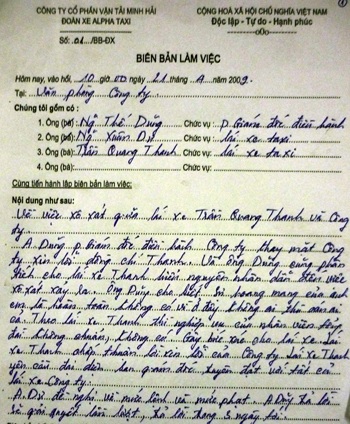 CÔNG TY CỔ PHẦN VẬN TẢI MINH HẢI
ĐOÀN XE ALPHA TAXI
Số: 01/BB-ĐX
CỘNG HOÀ XÃ HỘI CHỦ NGHĨA VIỆT NAM
Độc lập - Tự do - Hạnh phúc
-----o0o-----
BIÊN BẢN LÀM VIỆC
Hôm nay, vào hồi, 10 giờ 00 ngày 21 tháng 4 năm 2009
Tại: Văn phòng Công ty
Chúng tôi gồm có :
1. Ông (bà): Ngô Thế Dũng Chức vụ : p.Giám đốc điều hành
2. Ông (bà): Ngô Xuân Dự Chức vụ : lái xe taxi
3. Ông (bà): Trần Quang Thanh Chức vụ : lái xe taxi
4. Ông (bà): Chức vụ :
Cùng tiến hành lập biên bản làm việc:
Nội dung như sau:
Về việc xô xát giữa lái xe Trần Quang Thanh và Công
ty.
A. Dũng p.Giám đốc điều hành Công ty thay mặt Công
ty xin lỗi đồng chí Thanh. Và ông Dũng cũng phân
tích cho lái xe Thanh hiểu nguyên nhân dẫn đến việc
xô xát xảy ra. Ông Dũng cho biết sự hoang mang của anh
em là hoàn toàn không có vì ở đây không ai thu oan ai
cả. Theo lái xe Thanh thì nghiệp vụ của nhân viên tổng
đài không chuẩn, không có. Gây bức xúc cho lái xe. Lái
xe Thanh chấp thuận lời xin lỗi của Công ty. Lái xe Thanh
yêu cầu đại diện ban giám đốc xuyên đạt với tất cả
lái xe Công ty.
A. Dự đề nghị về mức lệnh và mức phạt. A Dũng trả lời
sẽ giải quyết lần lượt, trả lời trong 3 ngày tới.